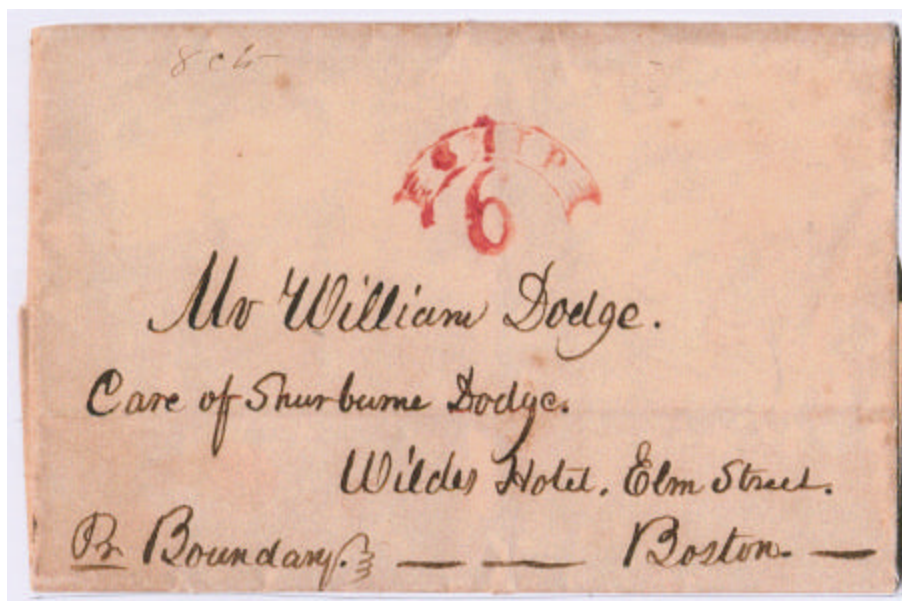 8 cts
SHIP
6
Mr William Dodge.
Care of Shurburne Dodge.
Wildes Hotel, Elm Street.
Pr Boundary. — — Boston. —